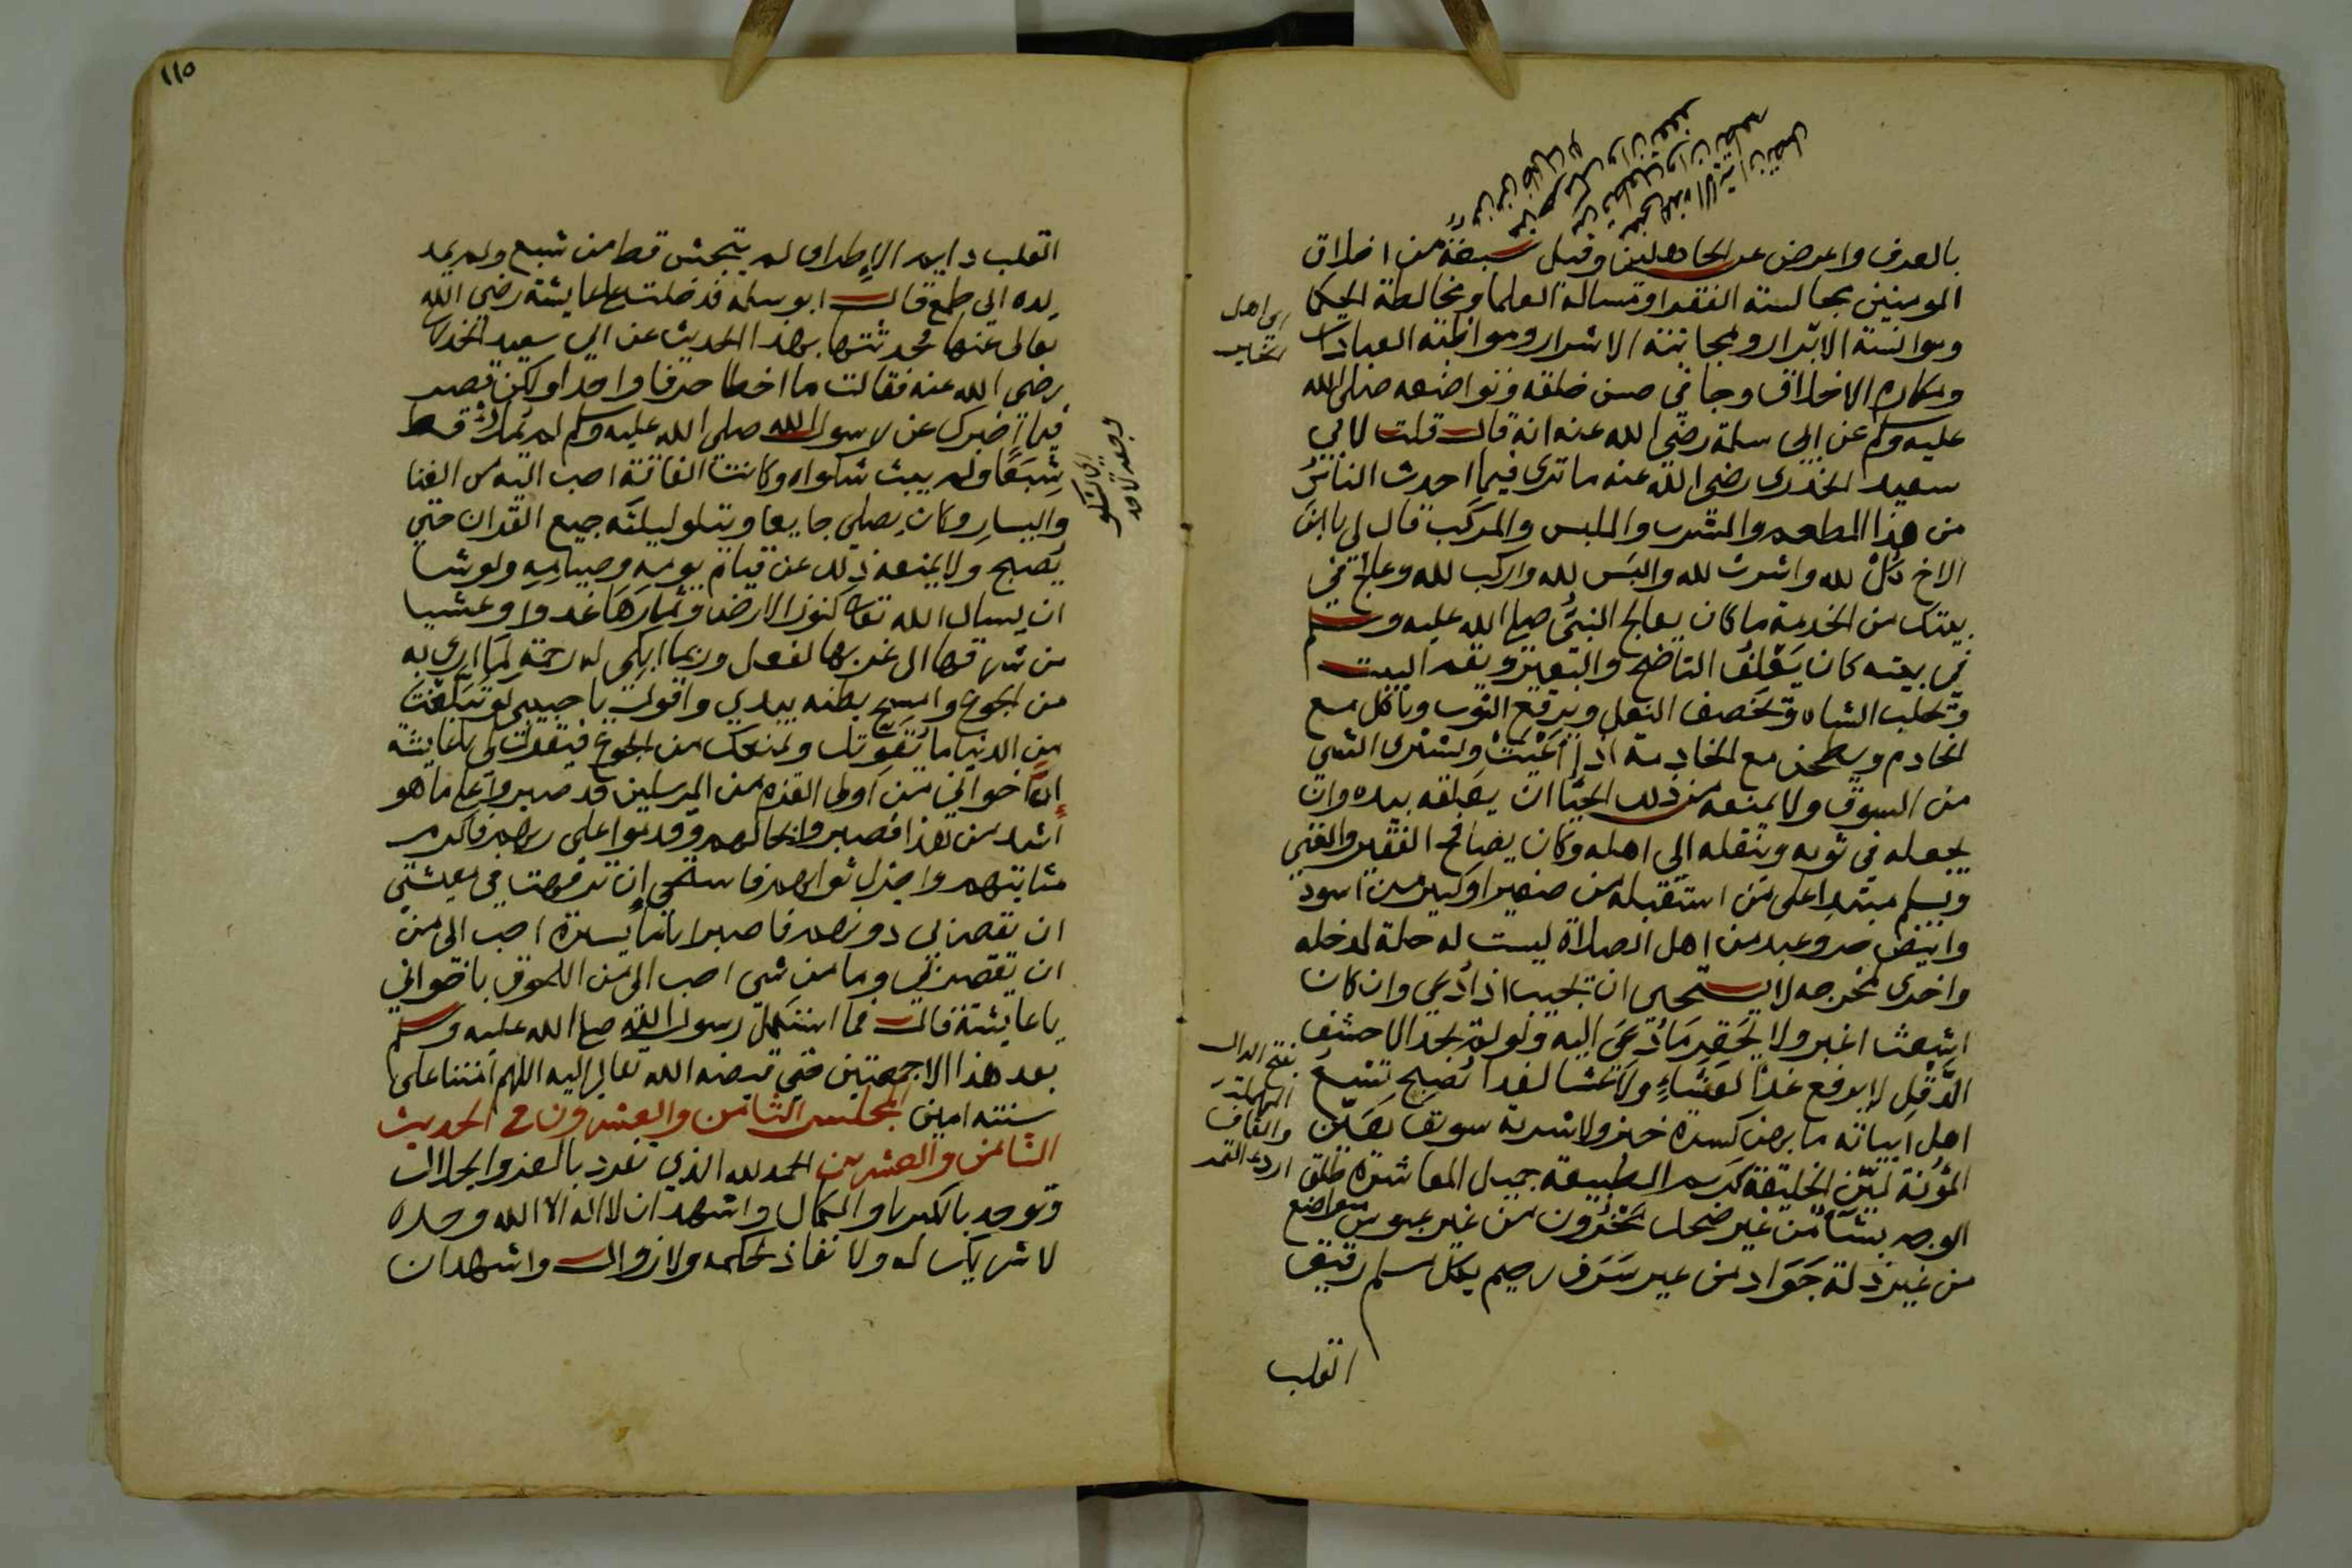 بالعرف واعرض عن الجاهلين وقيل سبعة من اخلاق
المومنين مجالسة الفقرا ومسالة العلما ومخالطة الحكما
وموانسة الابرار ومجانبة الاشرار ومواظبة العبادات
ومكارم الاخلاق وجا في حسن خلقه وتواضعه صلى الله
عليه وسلم عن ابي سلمة رضي الله عنه انه قال قلت لابي
سعيد الخدري رضي الله عنه ما ترى فيما احدث الناس
من هذا المطعم والمشرب والملبس والمركب قال لي يا ابن
الاخ كل لله واشرب لله والبس لله واركب لله وعالج في
بيتك من الخدمة ما كان يعالج النبي صلى الله عليه وسلم
في بيته كان يعلف الناضح والبعير ويقم البيت
ويحلب الشاه ويخصف النعل ويرقع الثوب وياكل مع
الخادم ويطحن مع الخادمة اذا اعيت ويشترى الشي
من السوق ولا يمنعه من ذلك الحيا ان يعلقه بيده وان
يجعله في ثوبه وينقله الى اهله وكان يصافح الفقير والغني
ويسلم مبتديا على من استقبله من صغير او كبير من اسود
وابيض حر وعبد من اهل الصلاة ليست له حلة لمدخله
واخرى لمخرجه لا يستحى ان يجيب اذا دعى وان كان
اشعث اغبر ولا يحقر ما دعى اليه ولو لم يجد الا حشف
الدقل لا يرفع غدا لعشاء ولا عشا لغدا تصبح تسع
اهل ابياته ما بهن كسرة خبز ولا شربة سويق هين
المؤنة لين الخليقة كريم الطبيعة جميل المعاشرة طلق
الوجه بساما من غير ضحك محزون من غير عبوس متواضع
من غير ذلة جواد من غير سرف رحيم بكل مسلم رقيق
القلب
بفتح الدال
المهملة
والقاف
اردء التمر
١١٥
القلب دايم الاطراق لم يتجش قط من شبع ولم يمد
يده الى طمع قال ابو سلمه فدخلت على عايشة رضي الله
تعالى عنها فحدثتها بهذا الحديث عن ابي سعيد الخدري
رضي الله عنه فقالت ما اخطا حرفا واحدا ولكن قصر
فيما اخبرك عن رسول الله صلى الله عليه وسلم لم يمتلئ قط
شبعا ولم يبث شكواه وكانت الفاقة احب اليه من الغنا
واليسار وكان يصلي جايعا ويتلو ليلته جميع القران حتي
يصبح ولا يمنعه ذلك عن قيام يومه وصيامه ولو شا
ان يسال الله تعالى كنوز الارض وثمارها غدوا وعشيا
من شرقها الى غربها لفعل وربما ابكى له رحمة لما ارى به
من الجوع وامسح بطنه بيدي واقول يا حبيبي لو تبلغت
من الدنيا ما يقوتك ويمنعك من الجوع فيقول لي يا عايشة
ان اخواني من اولى العزم من المرسلين قد صبروا على ما هو
اشد من هذا فصبروا بحالهم وقدموا على ربهم فاكرم
مثابتهم واجزل ثوابهم فاستحي ان ترفهت في معيشتي
ان تقصر بي دونهم فاصبر اياما يسيرة احب الى من
ان تقصر بي وما من شى احب الى من اللحوق باخواني
يا عايشة قالت فما استكمل رسول الله صلى الله عليه وسلم
بعد هذا الا جمعتين حتي قبضه الله تعالى اليه اللهم امتنا على
سنته امين المجلس الثامن والعشرون في الحديث
الثامن والعشرين الحمد لله الذي تفرد بالعز والجلال
وتوحد بالكبريا والكمال واشهد ان لا اله الا الله وحده
لا شريك له ولا نفاذ لحكمه ولا زوال واشهد ان